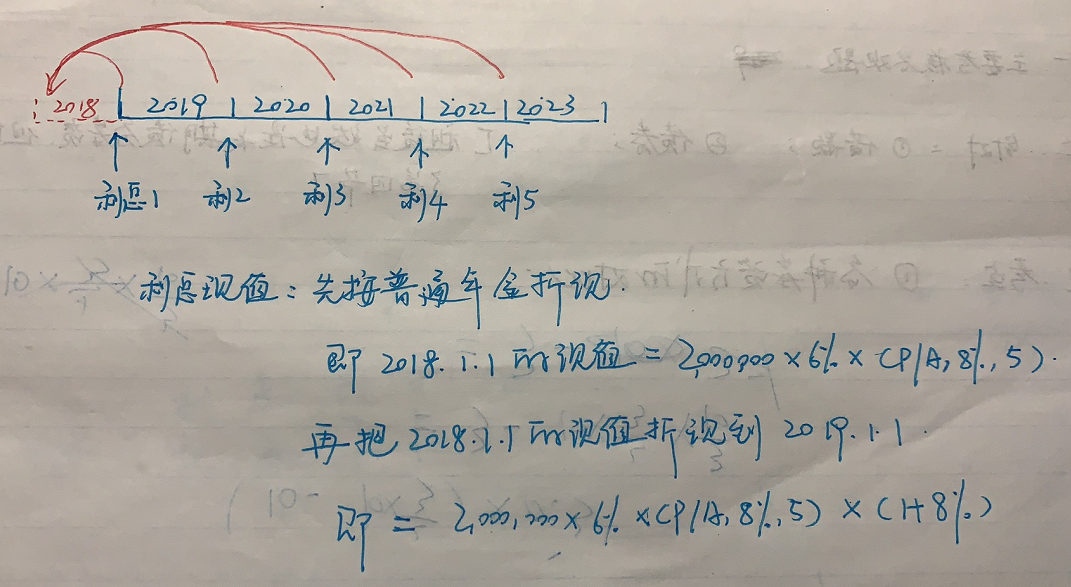 2018 2019 2020 2021 2022 2023
利息1 利2 利3 利4 利5
利息现值：先按普通年金折现.
即 2018.1.1 的现值 = 2,000,000 × 6% × (P/A, 8%, 5).
再把 2018.1.1 的现值折现到 2019.1.1.
即 = 2,000,000 × 6% × (P/A, 8%, 5) × (1+8%)